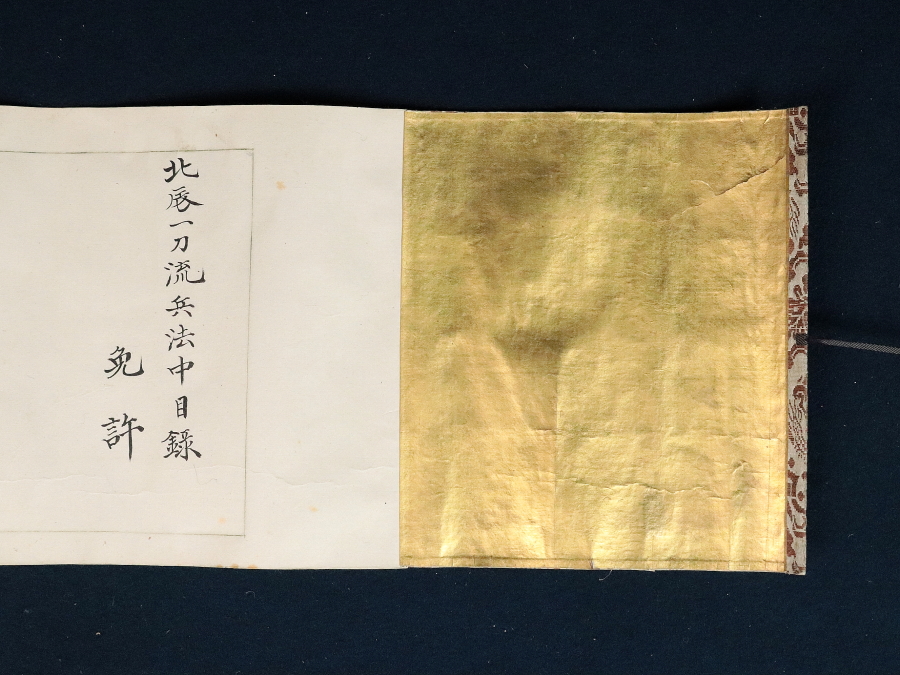 北辰一刀流兵法中目録
免許